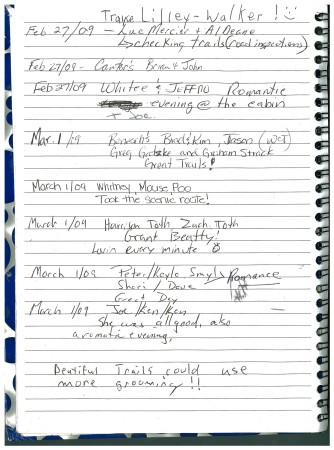 Lilley-Walker!
Feb 27/09 - Luc Mercier & Al Deane
checking trails (road inspections)
Feb 27/09 - Brian & John
Feb 27/09 Whitee & JEFFRO Romantic
evening @ the cabin
+ Joe
Mar. 1/09 Brad & Kim, Jason
Greg and Graham Strack
Great Trails!
March 1/09 Whitney, Mouse, Poo
Took the scenic route!
March 1/09 Harrison Toth Zach Toth
Grant Beatty!
Lovin every minute
March 1/09 Peter/Kayle Romance
Sheri / Dave
Great Day
March 1/09 Joe/Ken/Ken
She was all good, also
a romatic evening,
Beatiful Trails could use
more grooming!!